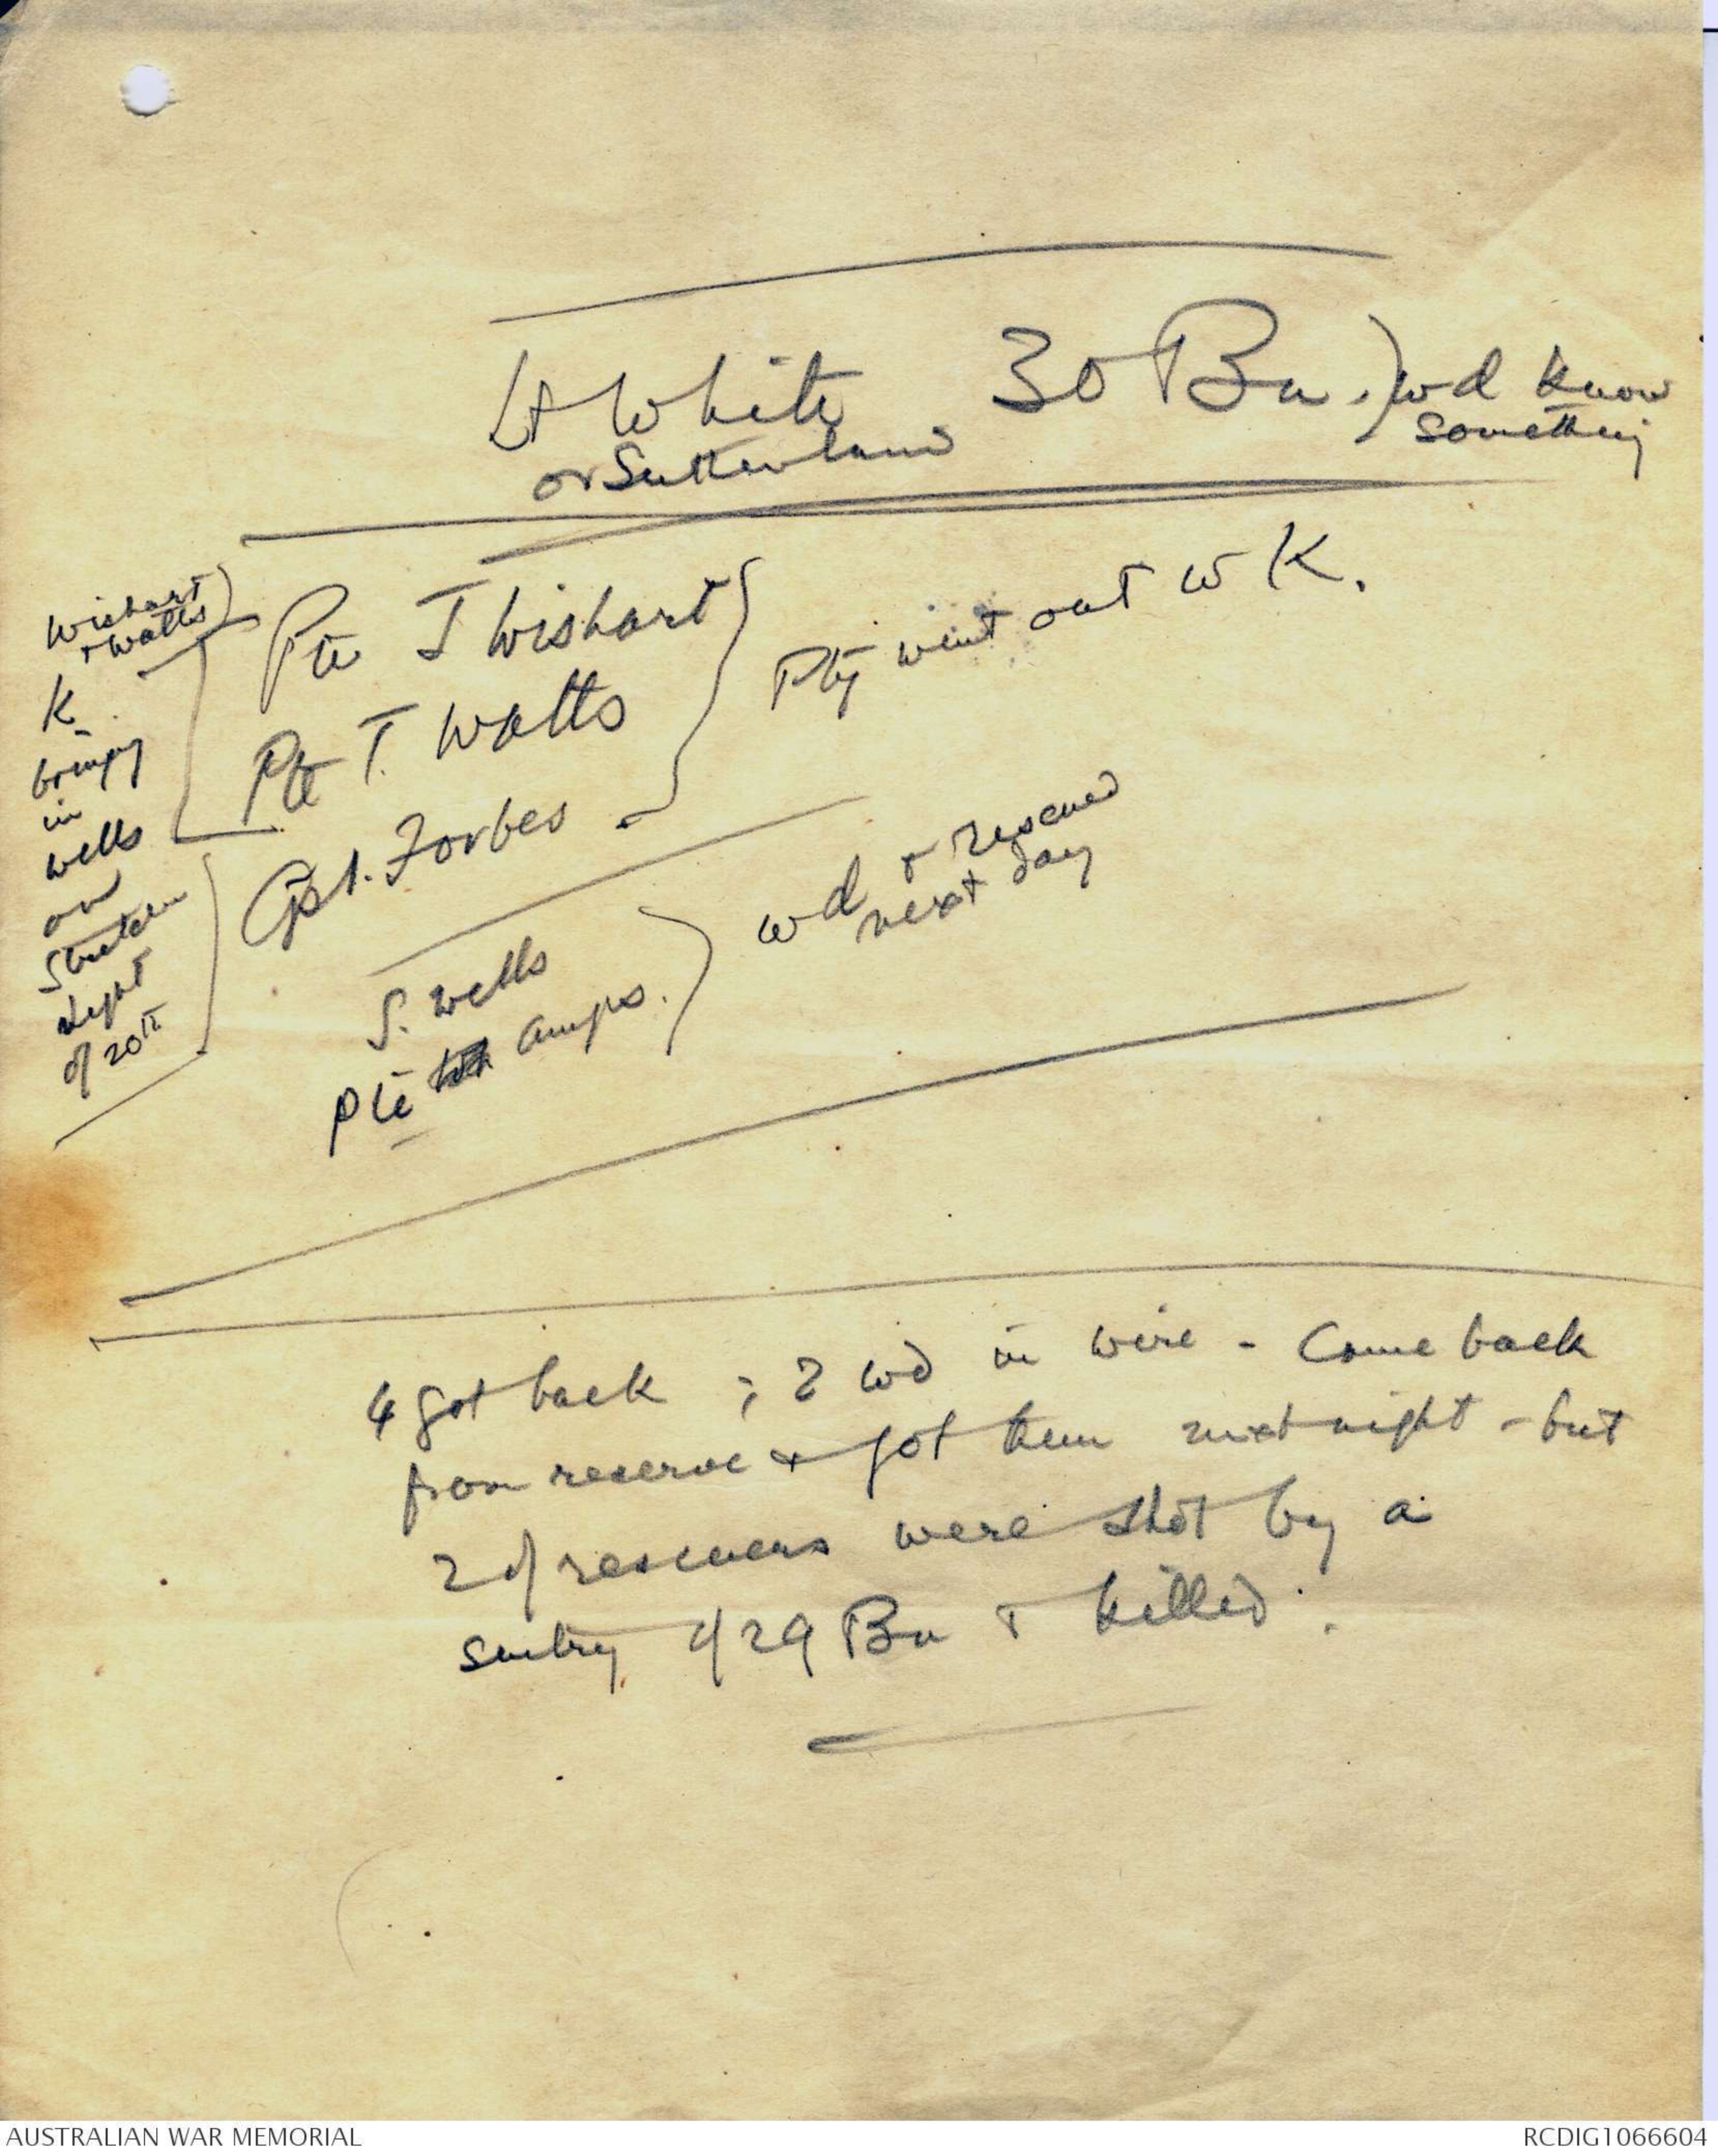 Lt White 30 Bn. ) wd know
or Sutherland something
Wishart
+ Watts
K.
bringing
in
Wells
on
stretcher
night
of 20th
Pte J Wishart
Pte T. Watts
Cpl. Forbes
Pty went out w K.
S. Wells
Pte Amps.
wd + rescued
next day
4 got back ; 2 wd in wire - Came back
from reserve & got them next night - but
2 of rescuers were shot by a
sentry of 29 Bn & killed.
AUSTRALIAN WAR MEMORIAL
RCDIG1066604